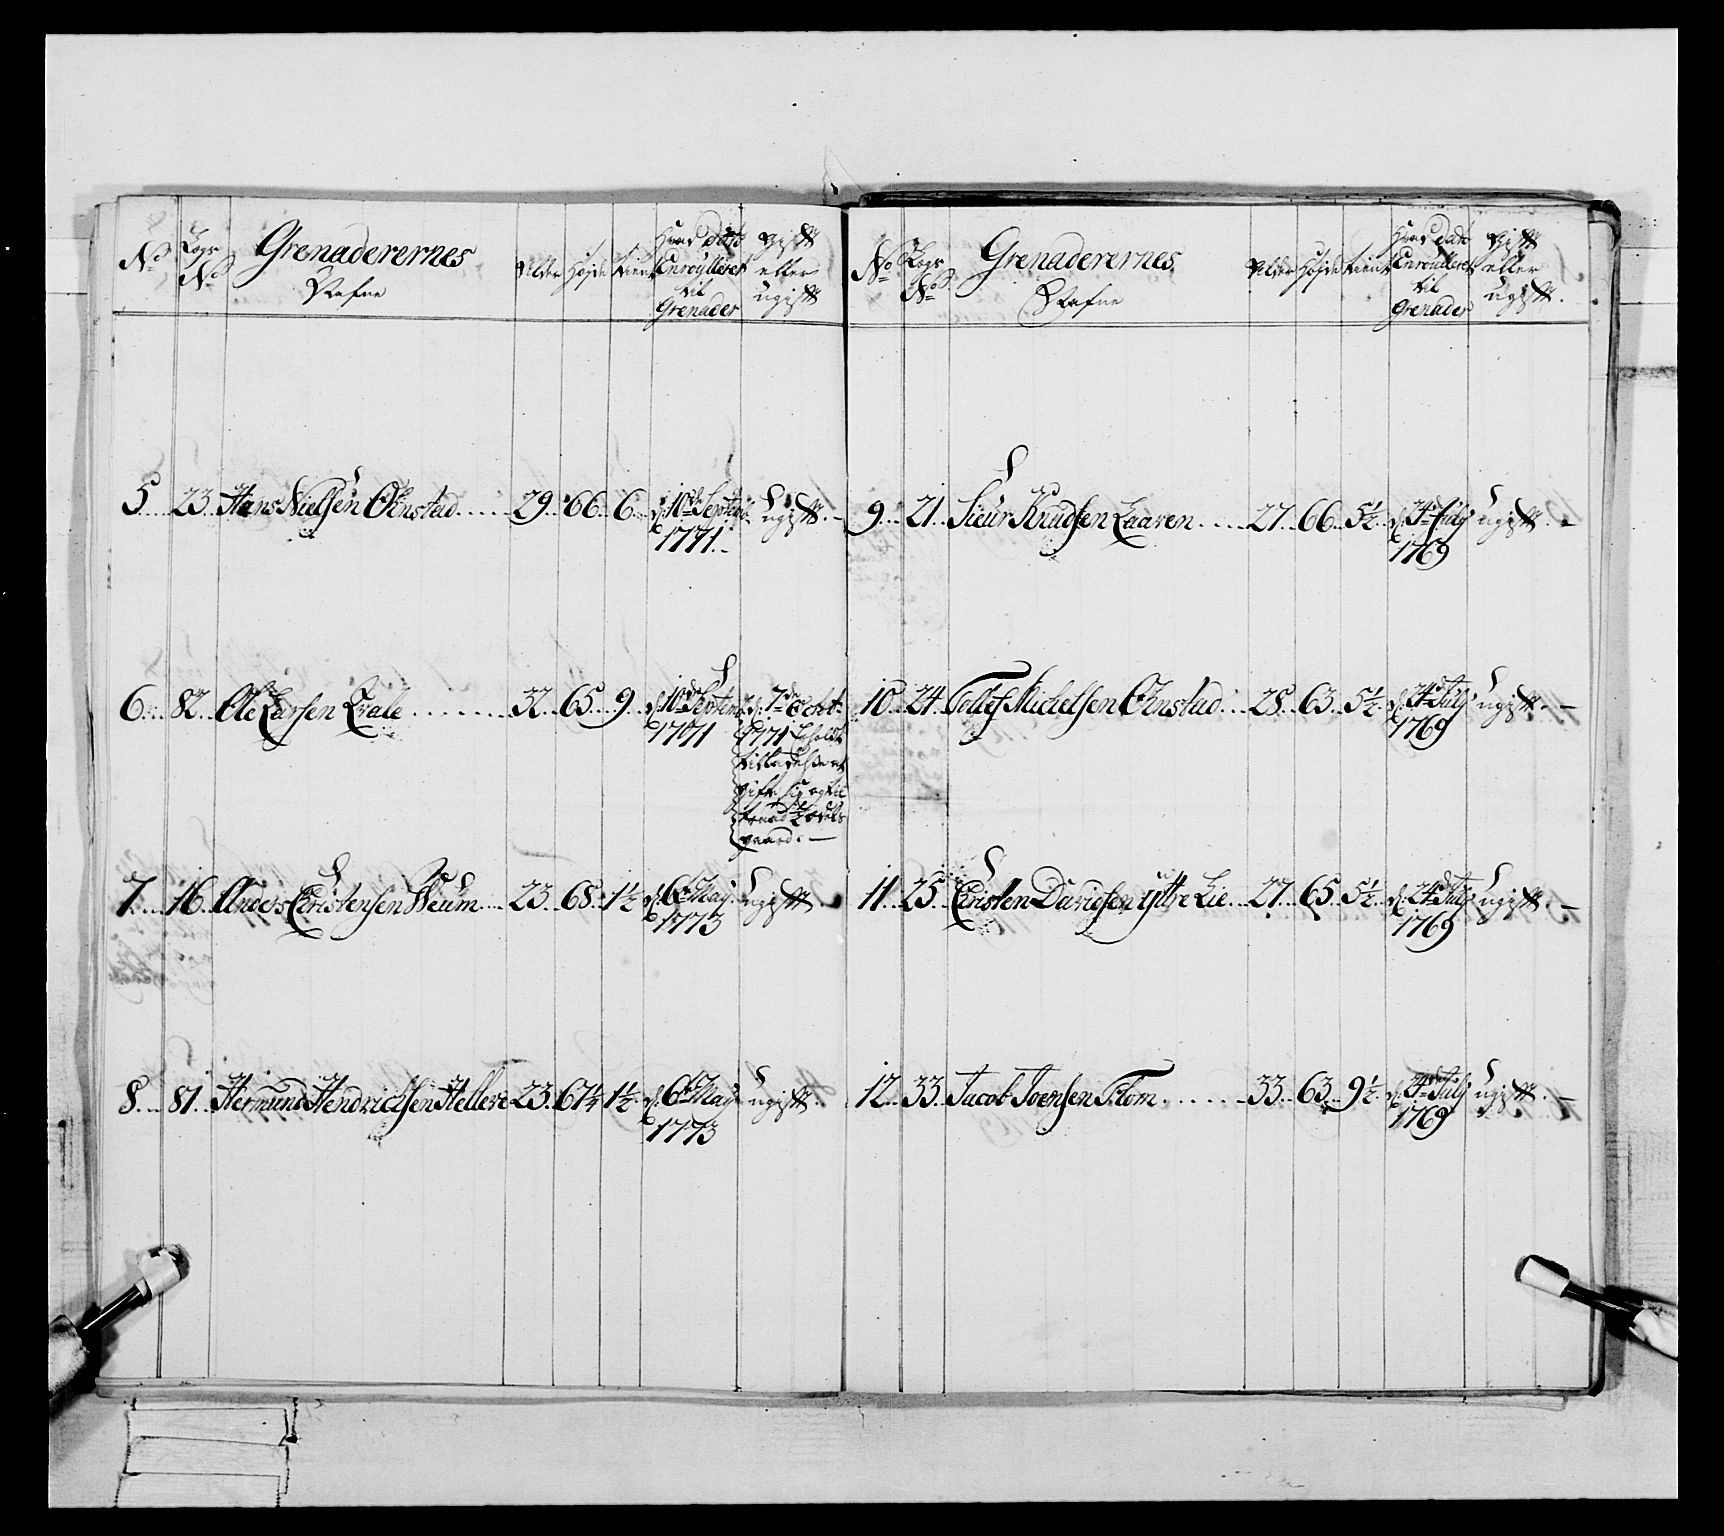 No
Logs No
Grenaderernes Nafne
Alder
Høyde
tient
Hvad dato Enroulleret til Grenader
Gift eller ugift
5 23 Hans Nielsen Ohnstad 29 66 6 d: 10de Septembr 1771. ugift.
6 82 Ole Larsen Qvale 32 65 9 d: 10de Septembr 1771 d: 7de Octbr:
1771 Erholdt
tilladelse at
gifte sig og til
traad Odels
gaard.
7 16 Anders Christensen Weum 23 68 1½ d: 6te May 1773 ugift
8 81 Hermund Hendrichsen Hellere 23 67¼ 1½ d: 6te May 1773 ugift.
No
Logs No
Grenaderernes Nafne
Alder
Høyde
tient
Hvad dato Enroulleret til Grenader
Gift eller ugift.
9 21 Siur Knudsen Laaren 27 66 5½ d: 24de July 1769 ugift.
10 24 Tollef Michelsen Ohnstad 28 63 5½ d: 24de July 1769 ugift.
11 25 Christen Davidsen yttre Lie 27 65 5½ d: 24de July 1769 ugift.
12 33 Jacob Joensen Flom 33 63 9½ d: 24de July 1769 ugift.